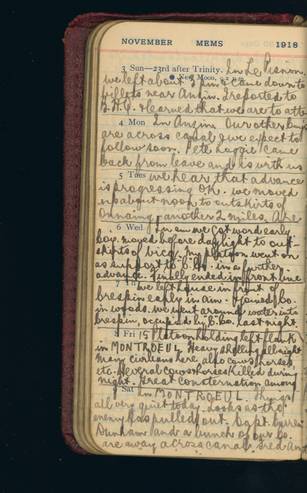 NOVEMBER MEMS 1918
3 Sun—23rd after Trinity. In Le
New Moon,
we left about 9 pm & came down to
billets near Anzin. I reported to
B.H.Q. & learned that we are to
4 Mon In Anzin. Our other
are across canal & we expect to
follow soon. Pete came
back from leave and is with us
5 Tues we hear that advance
is progressing OK. we moved
up about noon to outskirts of
Onnaing another 2 miles. Are
6 Wed In am we got word early
Coy. moved before daylight to out-
skirts of Vicq. My platoon went on
as support to in a further
advance. Finally ended in front line
7 we left house in front of
Crespin early in am. & joined Co.
in woods. we went around water into
Crespin, occupied by last night
8 Fri 15 Platoon holding left flank
in MONTROEUL. Heavy shelling all night
many civilians here also cows horses
etc. Several cows horses killed during
night. Great consternation among
9 Sat In MONTROEUL. Things
all very quiet today. Looks as tho
enemy has pulled out. Capt.
Dunham and a bunch of our Co.
are away across canal.